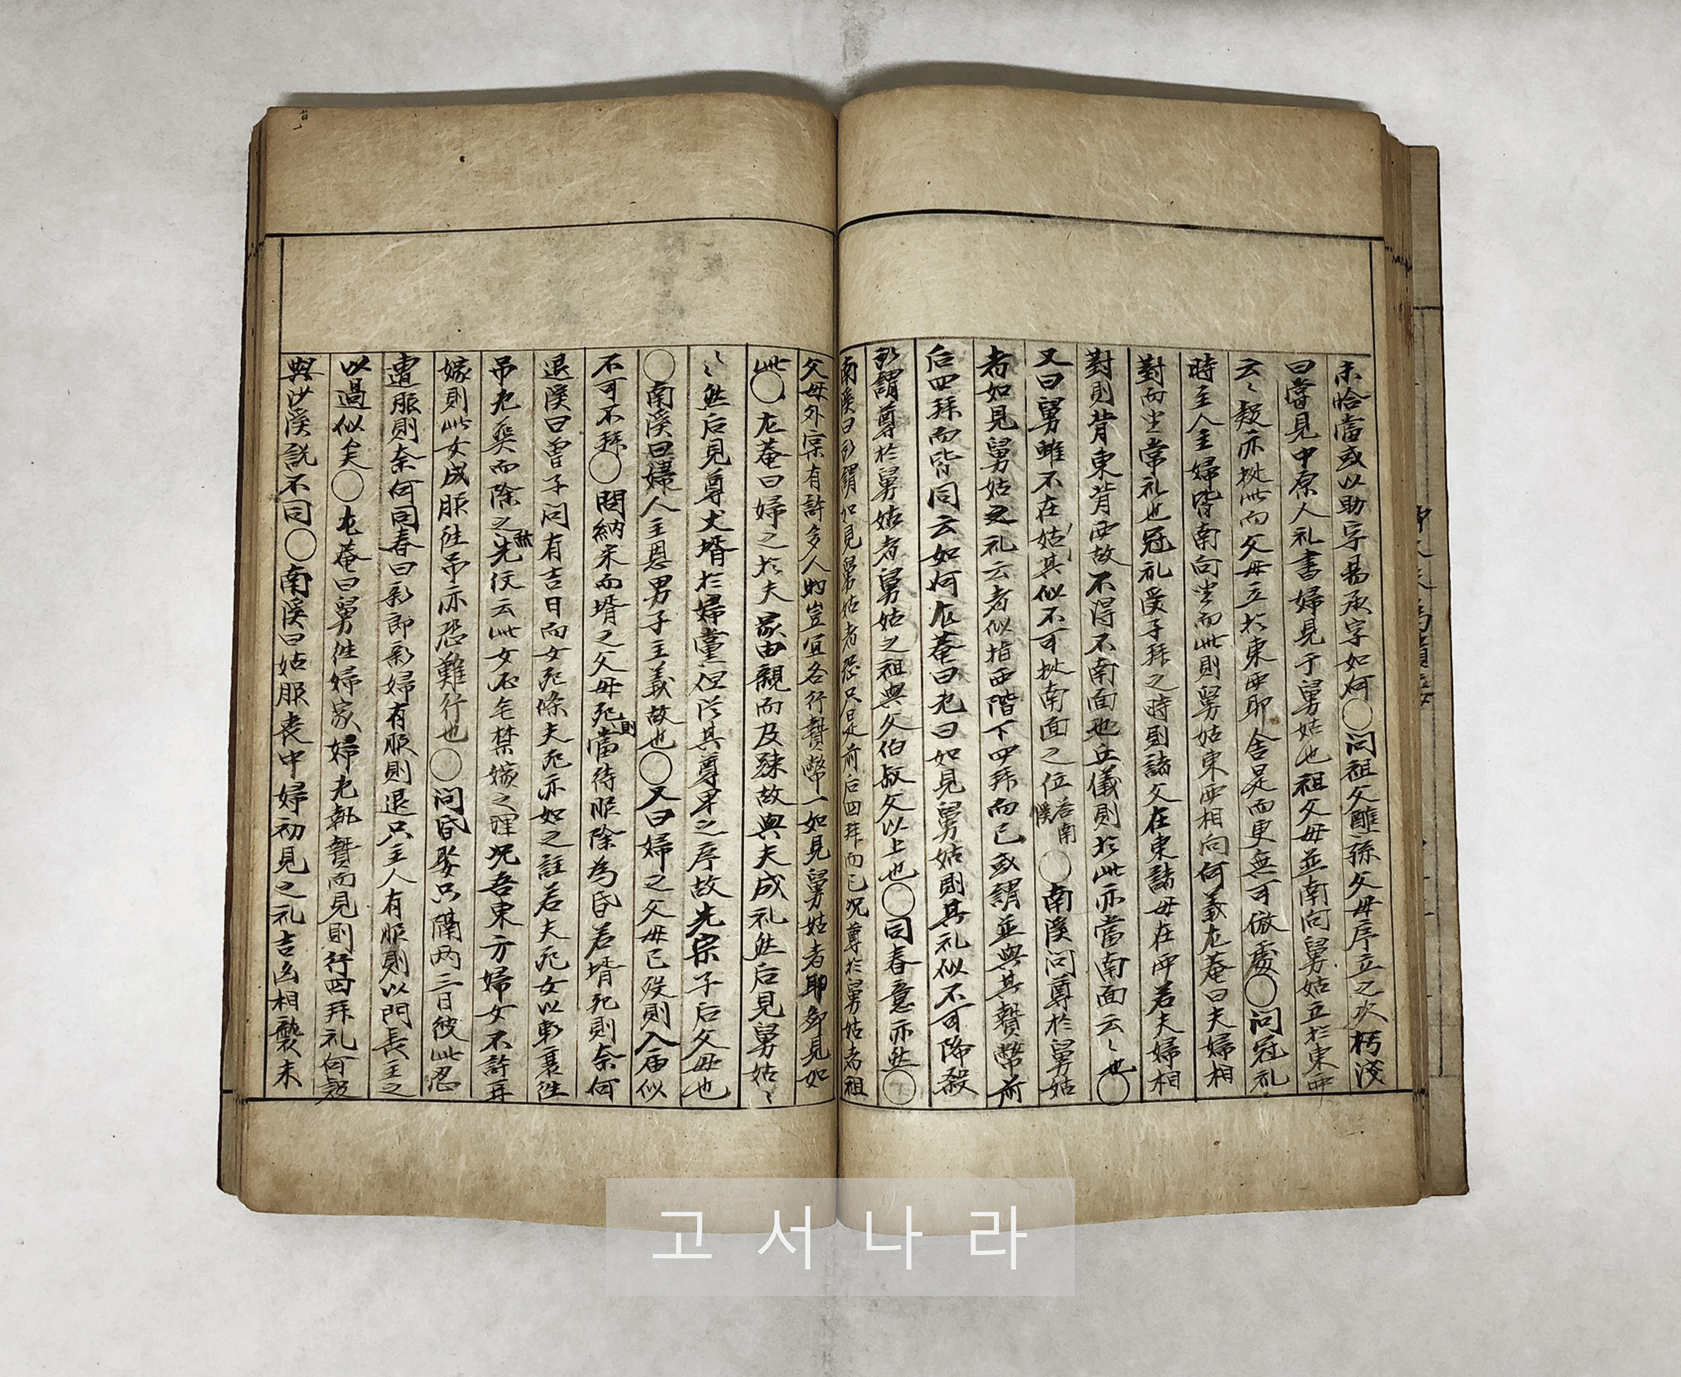 未恰當或以助字易承字如何〇問祖父雖孫父母序立之次朽淺
曰嘗見中原人礼書婦見于舅姑也祖父母並南向舅姑立於東西
云〻疑亦挑此而父母立於東西耶舍是而更無可倣處〇問冠礼
時主人主婦皆南向坐而此則舅姑東西相向何義尤菴曰夫婦相
對而坐常礼也冠礼受子拜之時則諸父在東諸母在西若夫婦相
對則背東背西故不得不南面也丘儀則於此亦當南面云〻也〇
又曰舅雖不在姑其似不可挑南面之位 答南溪〇南溪問尊於舅姑
者如見舅姑之礼云者似指西階下四拜而已或謂並與其贄幣前
后四拜而皆同云如何尤菴曰尤曰如見舅姑則其礼似不可降殺
所謂尊於舅姑者舅姑之祖與父伯叔父以上也〇同春意亦然〇
南溪曰所謂如見舅姑者恐只是前后四拜而已况尊於舅姑者祖
父母外宗有許多人的豈宜各行贄幣一如見舅姑者耶卸見如
此〇尤菴曰婦之於夫家由親而及疎故與夫成礼然后見舅姑〻
〻然后見尊丈壻於婦黨但從其尊卑之序故先宗子后父母也
〇南溪曰婦人主恩男子主義故也〇又曰婦之父母已歿則入庙似
不可不拜〇問納采而壻之父母死則當待服除為昏若壻死則奈何
退溪曰曾子问有吉日而女死條夫死亦如之註若夫死女以斬衰往
吊尤葬而除之 然先仗云此女不〇禁嫁之理况吾東方婦女不許再
嫁則此女成服往吊亦恐難行也〇问昏娶只隔兩三日彼此忽
遭服則奈何同春曰新郎新婦有服則退只主人有服則以門長主之
以過似矣〇尤菴曰舅往婦家婦先執贄而見則行四拜礼何疑
與沙溪説不同〇南溪曰姑服喪中婦初見之礼吉凶相襲未
고서나라